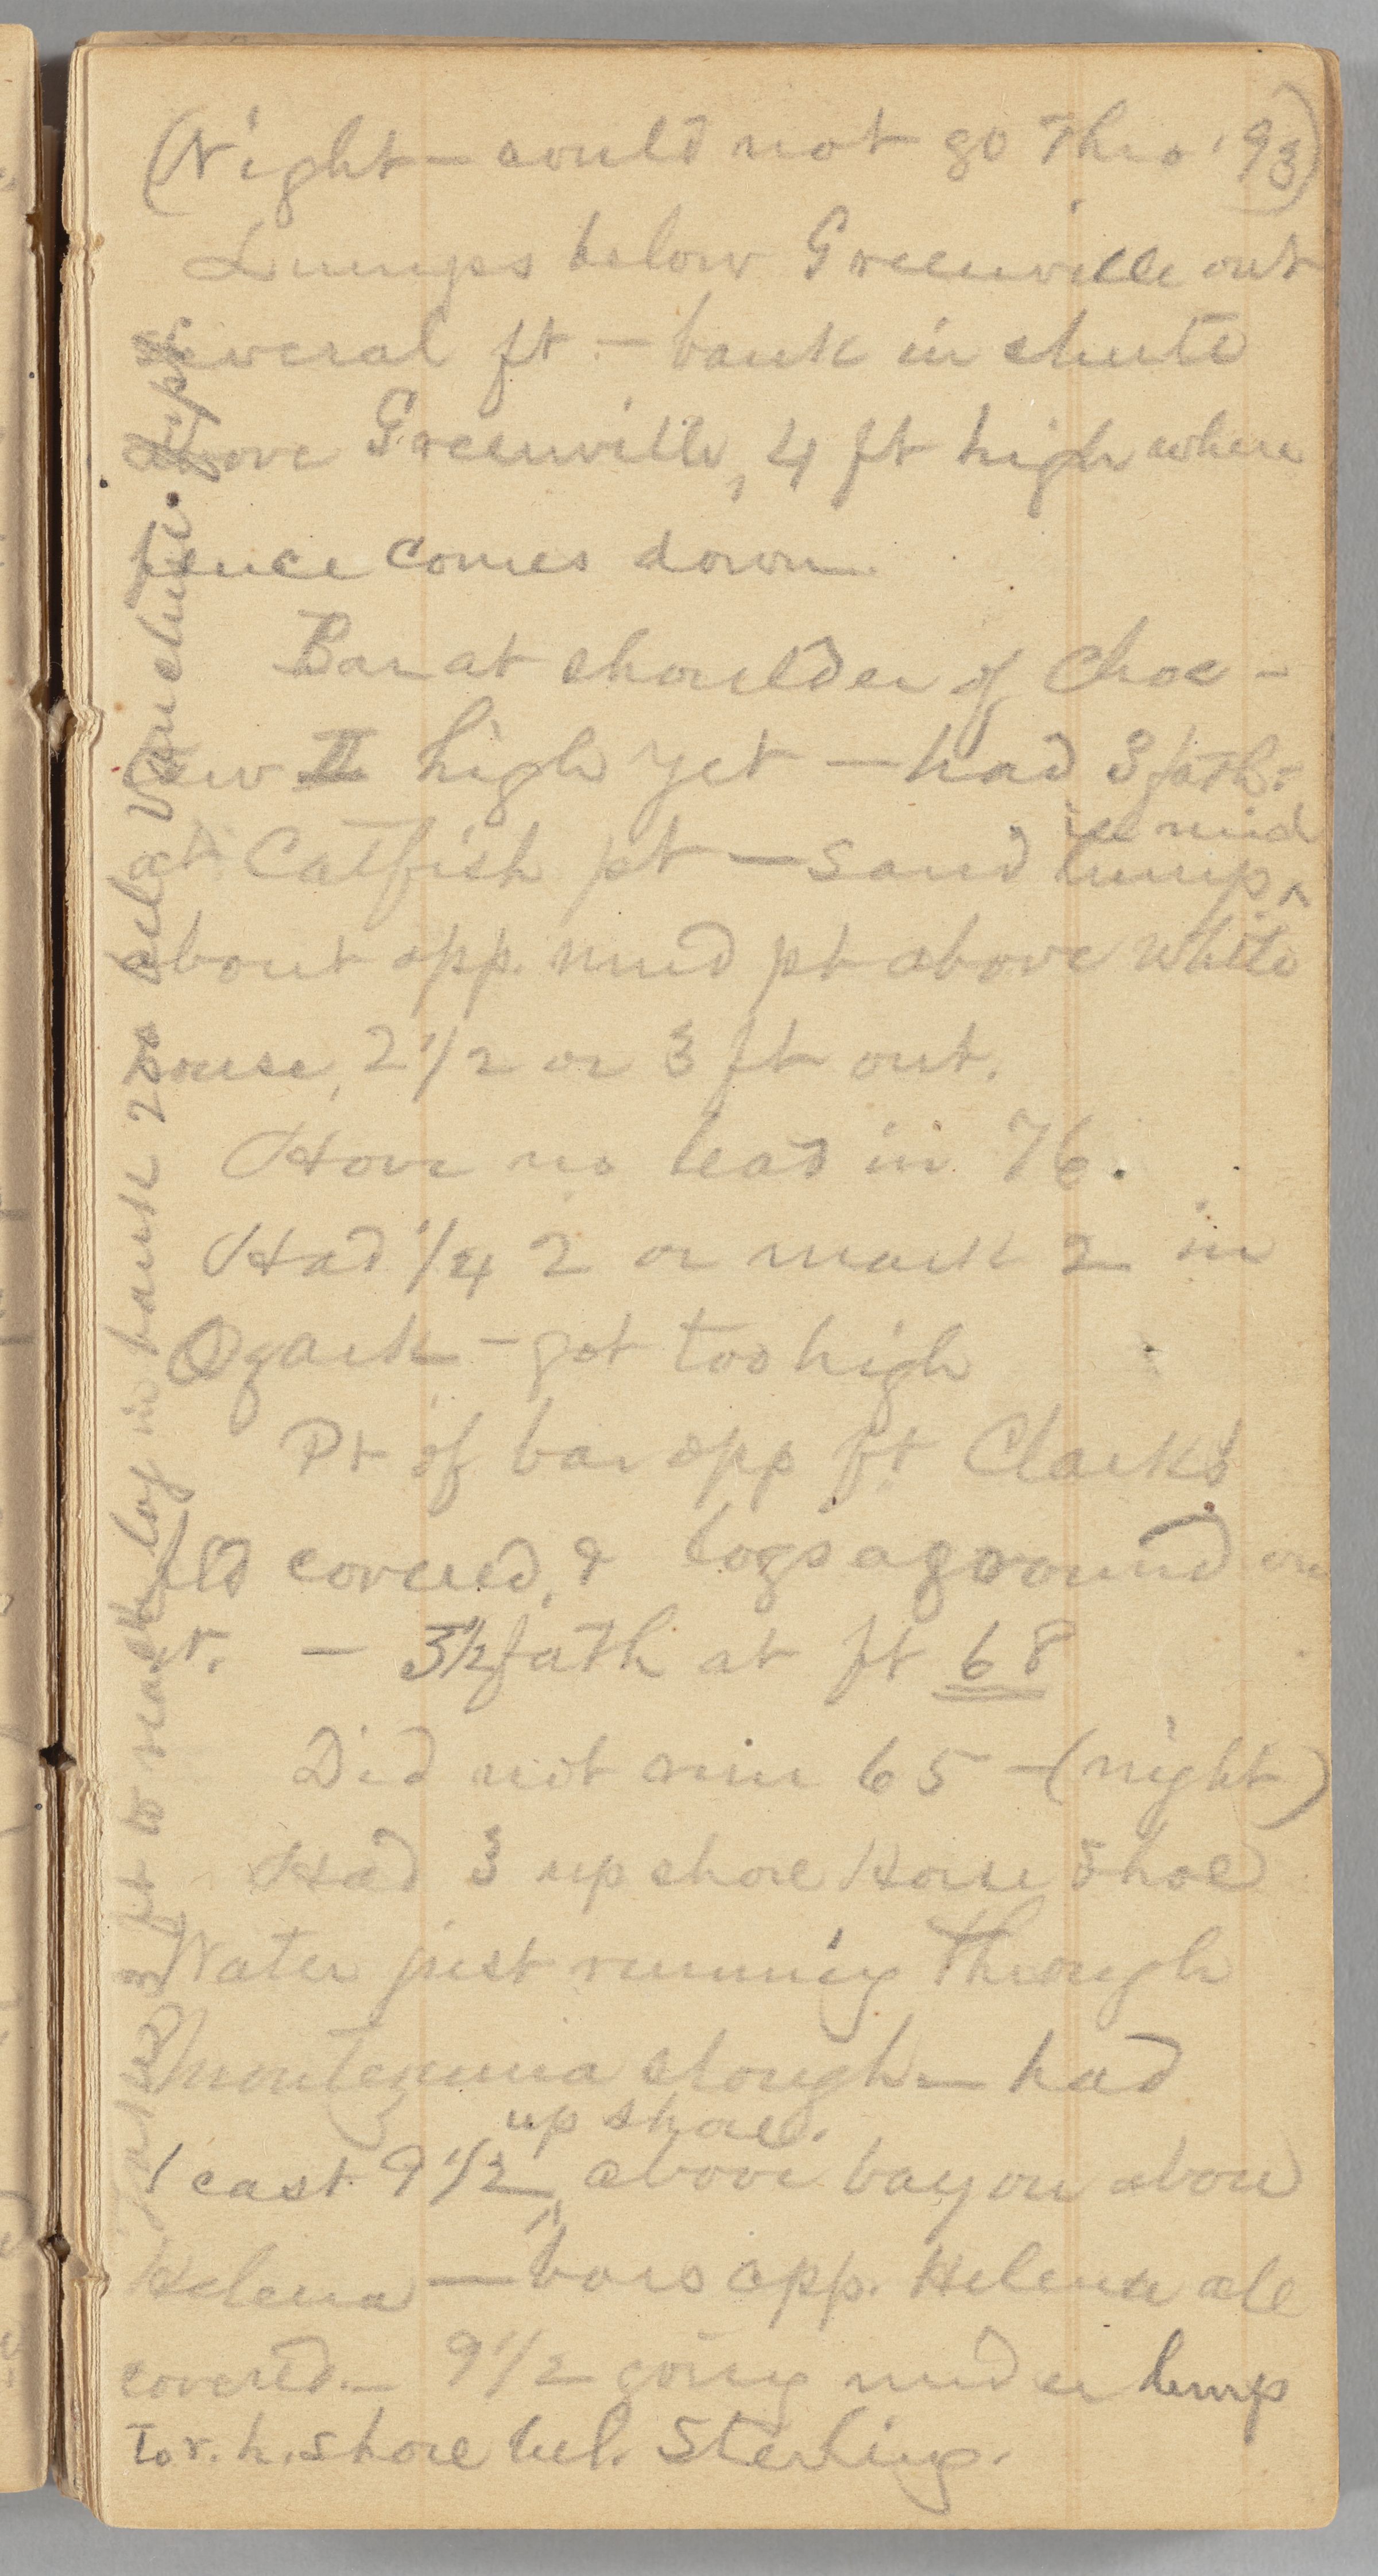 (Night — could not go thro' 93)
Lumps below Greenville out
several ft. — bank in chute
above Greenville, 4 ft high where
fence comes down.
Bar at shoulder of Choc-
taw II high yet — had 3 fath.
in mid
at Catfish pt — sand lump ^
about opp. mud pt above white
house, 2 1/2 or 3 ft out.
Hove no lead in 76.
Had 1/4 2 or mark 2 in
Ozark — got too high
Pt of bar opp ft Clark's
fld covered, & logs aground on
it. — 3 1/2 fath at ft 68
Did not run 65 — (night)
Had 3 up shore Horse Shoe
Water just running through
Montezuma slough — had
up shore.
1 cast 9 1/2 ^ above bayou above
Helena — bars opp. Helena all
covered. — 9 1/2 going under lump
To r. h. shore bel. Sterling.
3 ft to reach log in bank 2d bel a Vouchui. pt